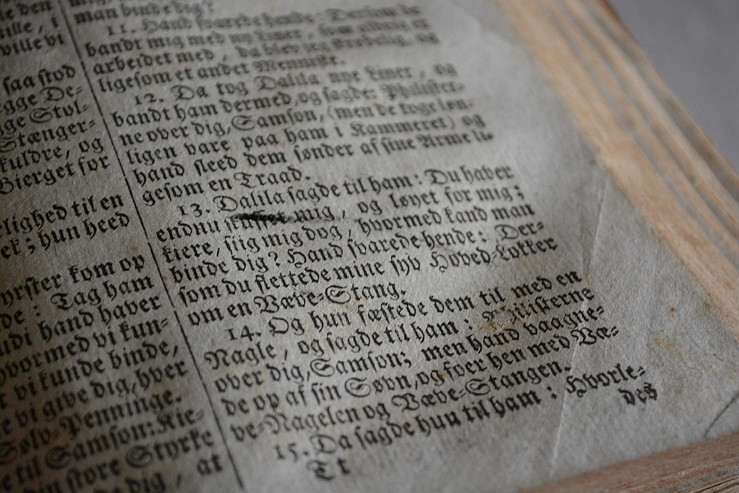 e den
ille, i
ville vi
saa stod
gge De-
ge Stol-
Stænger-
kuldre, og
Bierget for
elighed til en
ek; hun heed
yrster kom op
de: Tag ham
udi hand haver
hvormed vi kun-
t vi kunde binde,
e vi give dig, hver
Sølv-Penninge.
e til Samson: Kie-
din store Styrke
dig, at
man binde dig?
11. Hand svarede hende: Dersom de
bandt mig med ny Liner, som aldrig er
arbeidet med, da blev jeg skrøbelig, og
ligesom et andet Menniske.
12. Da tog Dalila nye Liner, og
bandt ham dermed, og sagde: Philister-
ne over dig, Samson, (men de toge løn-
ligen vare paa ham i Kammeret) og
hand sleed dem sønder af sine Arme li-
gesom en Traad.
13. Dalila sagde til ham: Du haver
endnu skuffet mig, og løyet for mig;
kiere, siig mig dog, hvormed kand man
binde dig? Hand svarede hende: Der-
som du flettede mine syv Hoved-Lokker
om en Væve-Stang.
14. Og hun fæstede dem til med en
Nagle, og sagde til ham: Philisterne
over dig, Samson; men hand vaagne-
de op af sin Søvn, og foer hen med Væ-
ve-Nagelen og Væve-Stangen.
15. Da sagde hun til ham: Hvorle-
des
Tt